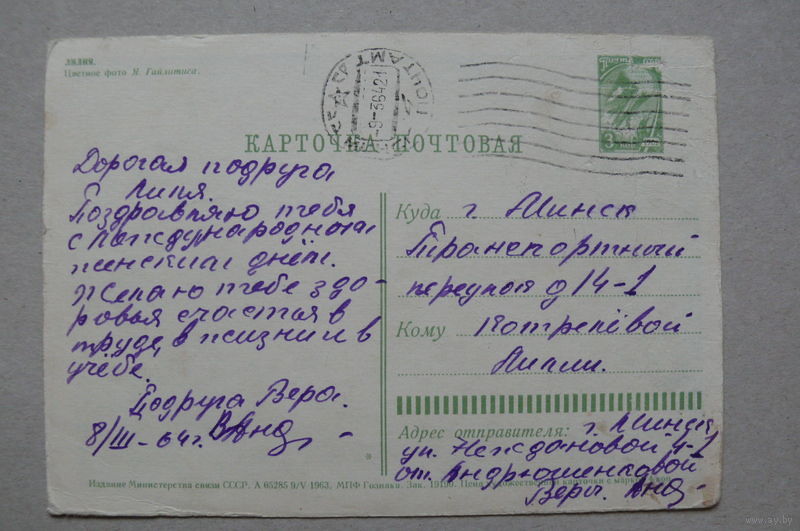 ЛИЛИЯ.
Цветное фото Я. Гайлитиса.
ПОЧТАМТ
-9-364 21
ПОЧТА СССР
3 КОП
КАРТОЧКА ПОЧТОВАЯ
Дорогая подруга
Лиля.
Поздравляю тебя
с Международном
женским днём.
Желаю тебе здо-
ровья счастья в
труде, в жизни и в
учёбе.
Подруга Вера.
8/III-64 г.
Куда г. Минск
Транспортный
переулок д 14-1
Кому Котрелёвой
Лилли.
Адрес отправителя: г. Минск
ул. Неждановой 4-1
от. Андрюшенковой
Веры.
Издание Министерства связи СССР. А 65285 9/V 1963. МПФ Гознака. Зак. 19190. Цена художественной карточки с маркой 4 коп.
www.ay.by